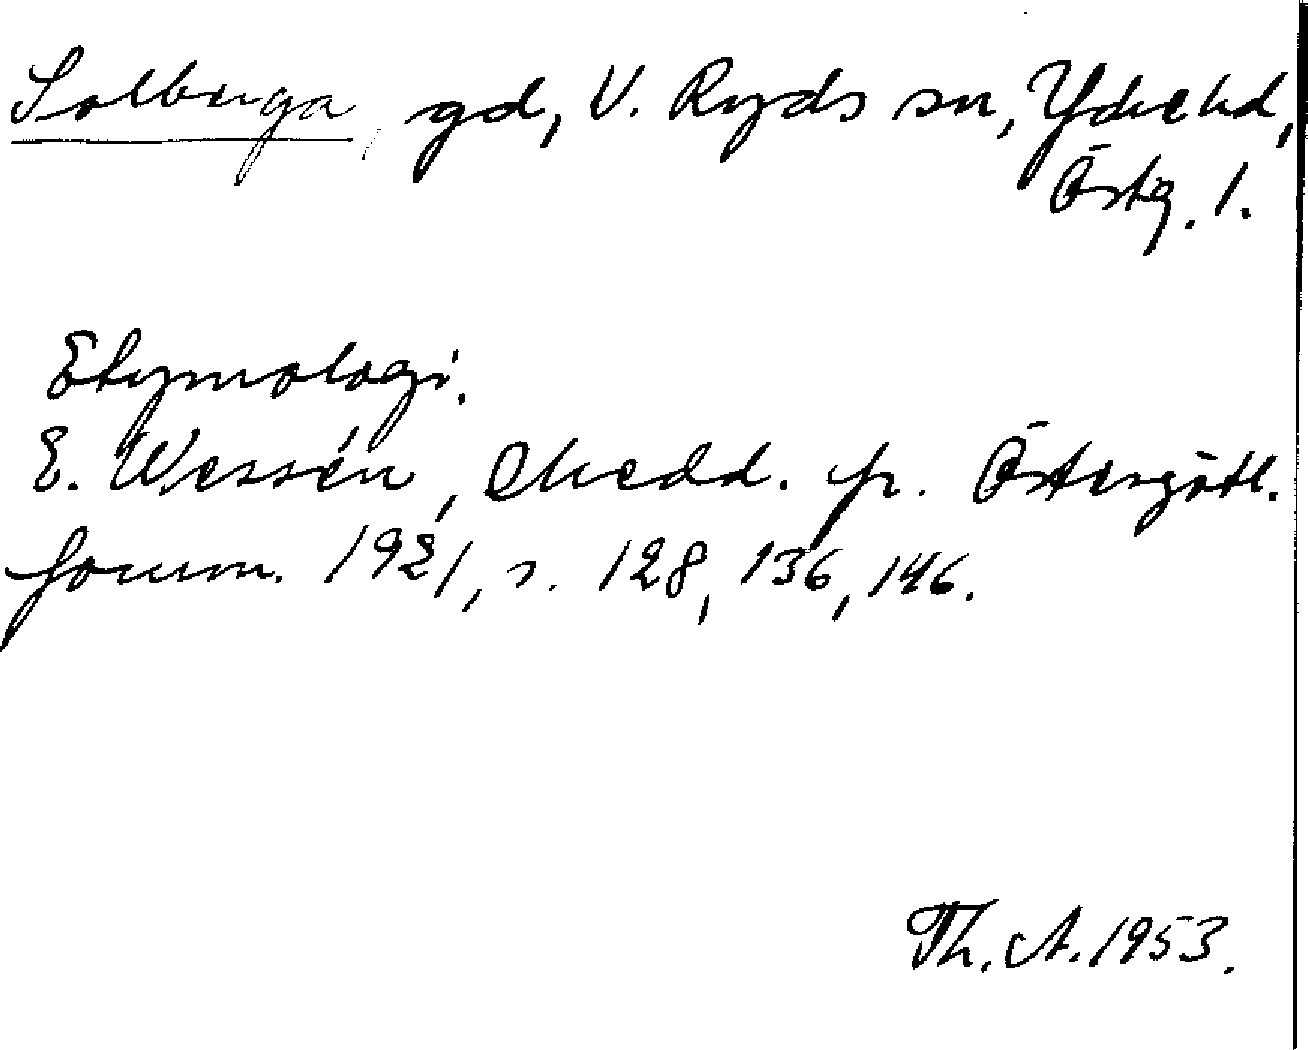 Solberga, gd, V. Ryds sn, Ydre hd,
Östg. l.
Etymologi.
E. Wessén, Medd. fr. Östergötl.
fornm. 1921, s. 128, 136, 146.
Th. A. 1953.